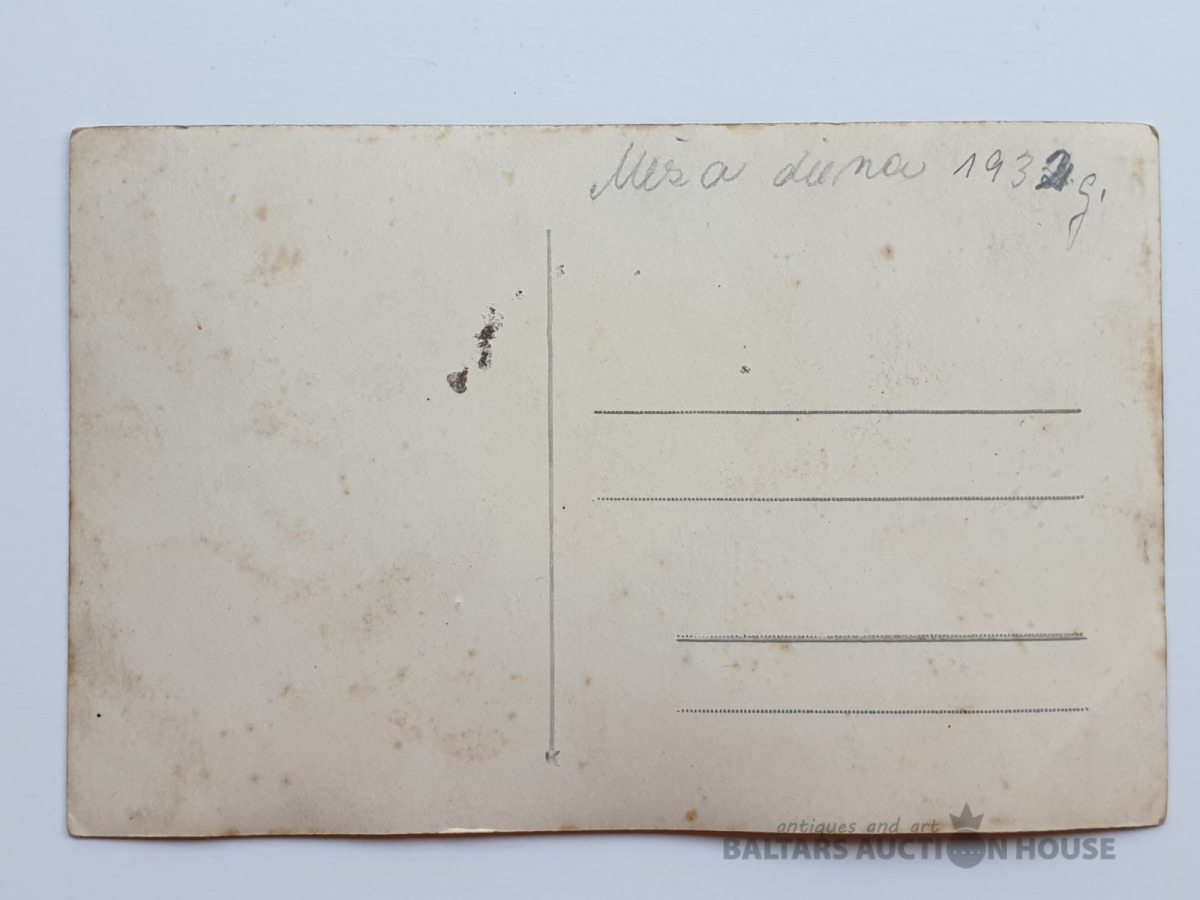 Meža diena 193 g.
K
antiques and art
BALTARS AUCTION HOUSE